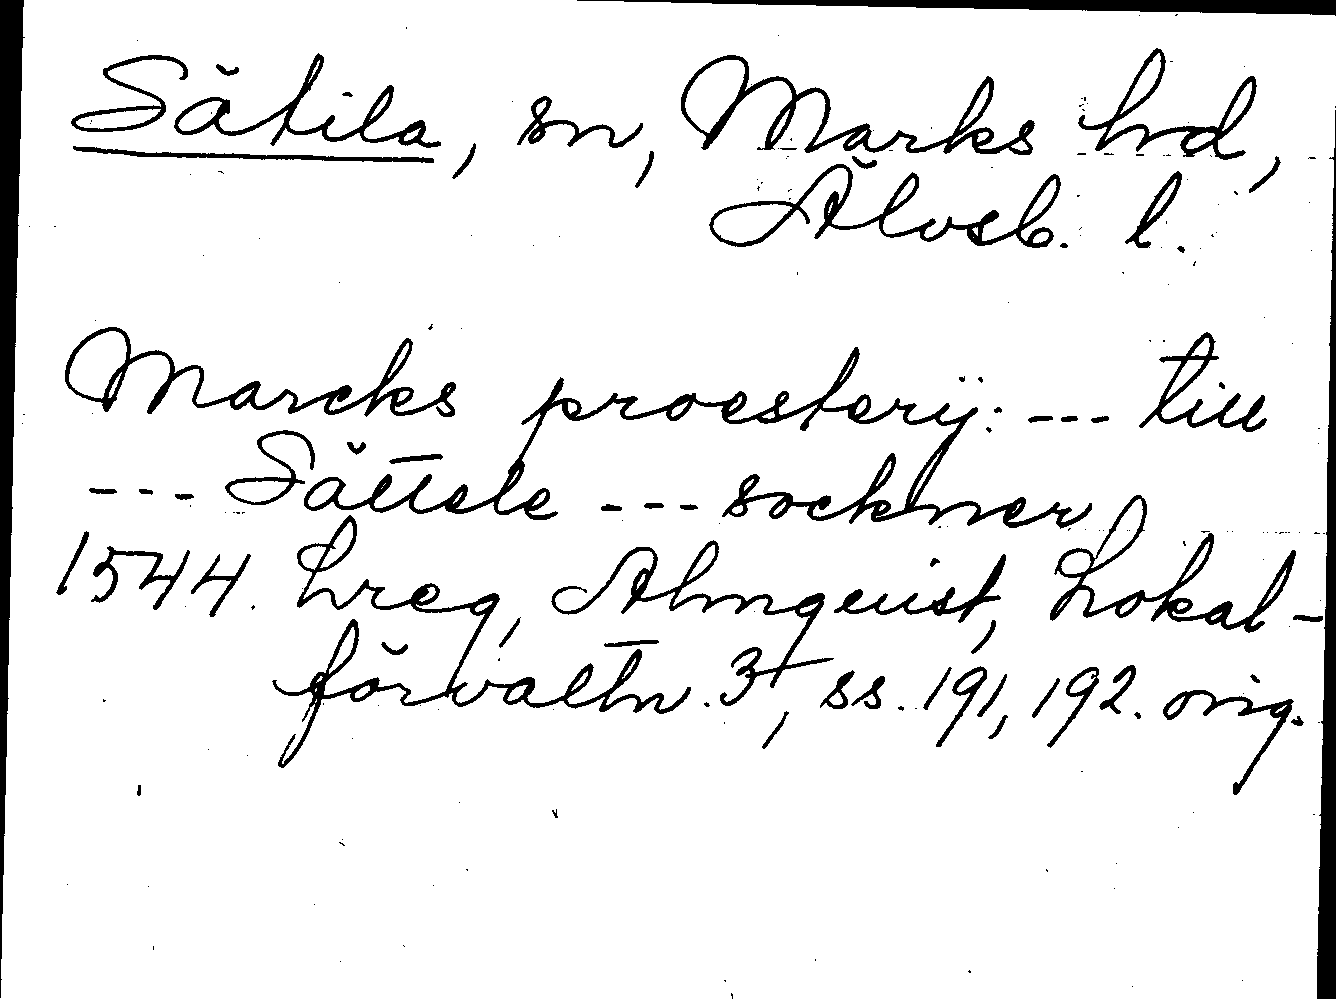 Sätila, sn, Marks hd,
Älvsb. l.
Marcks proesterij: --- till
--- Sättele --- socknner
1544. Lreg, Almquist, Lokal-
förvaltn. 3, ss. 191, 192. orig.